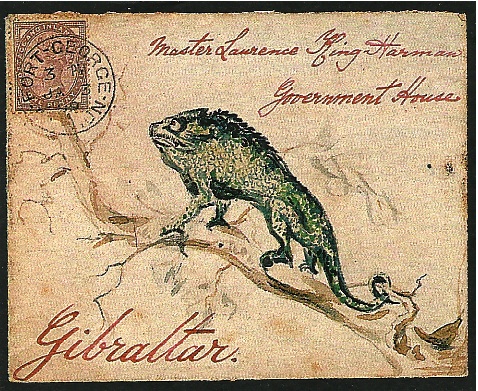 Master Laurence King Harman
Government House
Gibraltar.
FORT-GEORGE-N.B